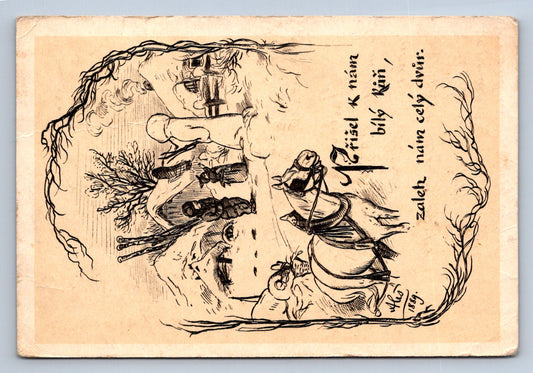 Přišel k nám
bílý kůň,
zaleh nám celý dvůr.
1889.